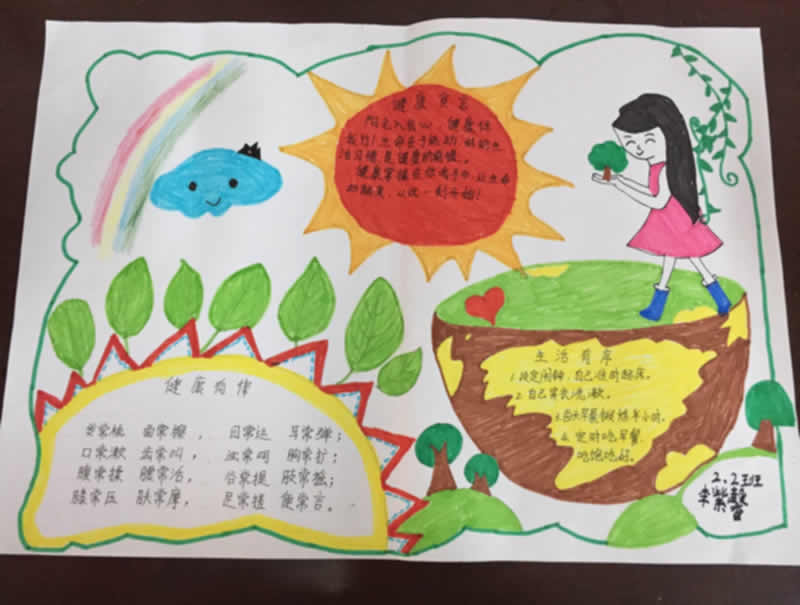 健康宣言
阳光入我心，健康伴
我行！生命在于运动，好的生
活习惯，是健康的前提。
健康掌握在你我手中，让生命
的颜色，从这一刻开始！
健康有律
发常梳 面常擦， 目常运 耳常弹；
口常漱 齿常叩， 浊常呵 胸常扩；
腹常揉 腰常活， 谷常提 肢常摇；
膝常压 肤常摩， 足常搓 便常言。
生活有序
1.设定闹钟，自己准时起床。
2.自己穿衣，洗漱。
3.每天早晨锻炼半小时。
4.定时吃早餐，
吃饱吃好。
2.2班
李紫馨